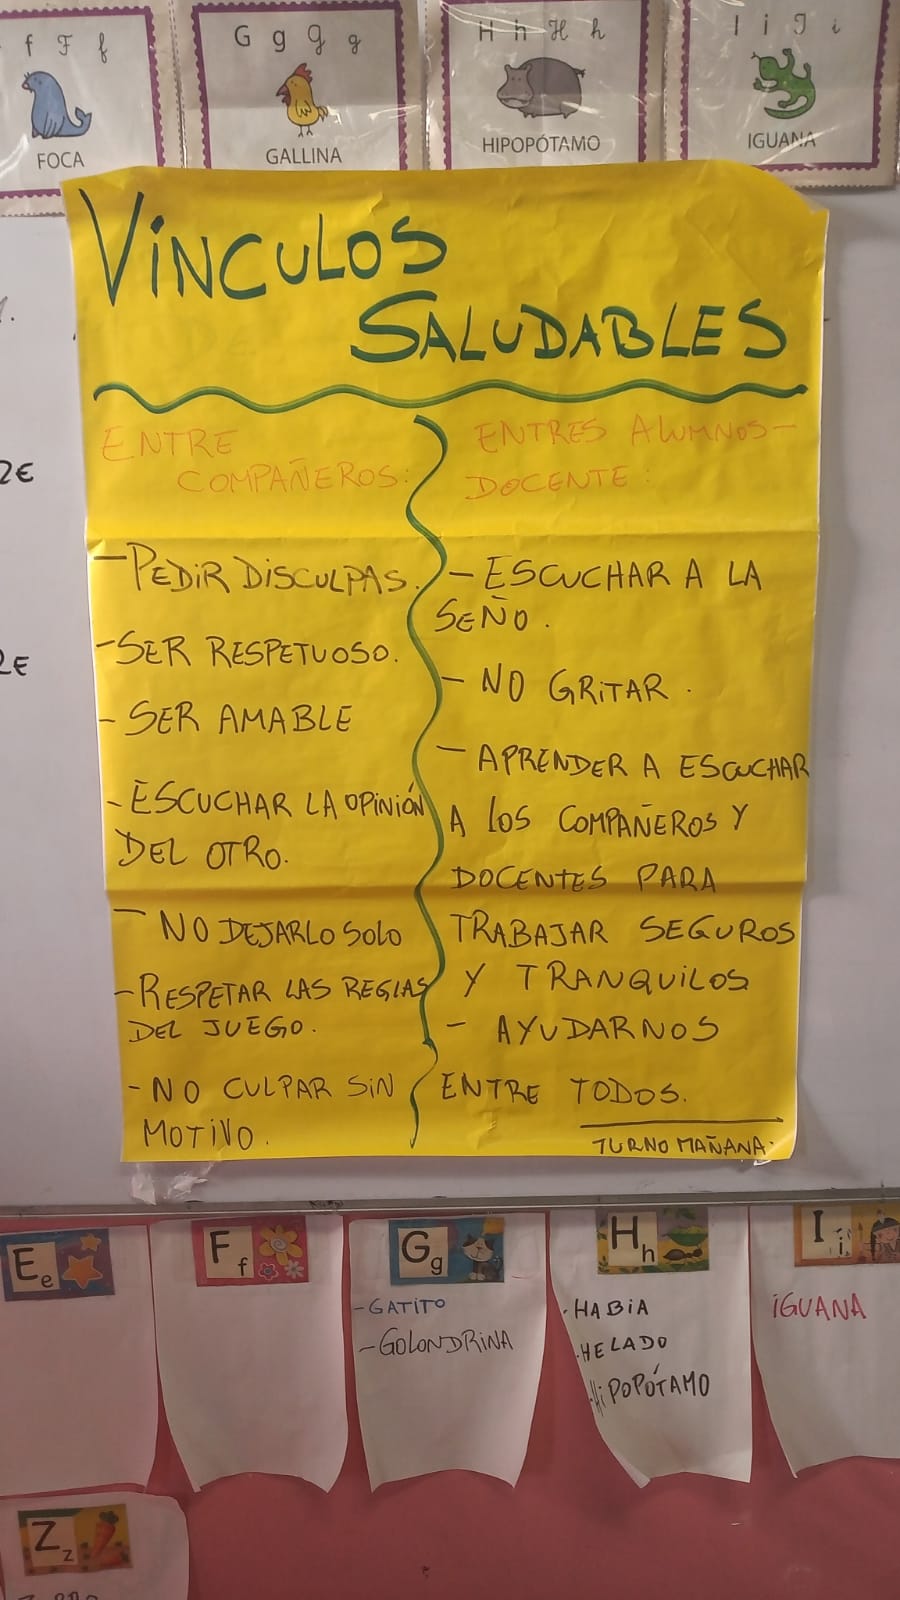 f F f
FOCA
G g G g
GALLINA
H h H h
HIPOPÓTAMO
I i I i
IGUANA
VÍNCULOS
SALUDABLES
ENTRE
COMPAÑEROS:
- PEDIR DISCULPAS.
- SER RESPETUOSO.
- SER AMABLE
- ESCUCHAR LA OPINIÓN
DEL OTRO.
- NO DEJARLO SOLO
- RESPETAR LAS REGLAS
DEL JUEGO.
- NO CULPAR SIN
MOTIVO.
ENTRES ALUMNOS-
DOCENTE:
- ESCUCHAR A LA
SEÑO.
- NO GRITAR.
- APRENDER A ESCUCHAR
A LOS COMPAÑEROS Y
DOCENTES PARA
TRABAJAR SEGUROS
Y TRANQUILOS
- AYUDARNOS
ENTRE TODOS.
TURNO MAÑANA.
E e
F f
G g
- GATITO
- GOLONDRINA
H h
- HABIA
- HELADO
- HIPOPÓTAMO
I i
IGUANA
Z z